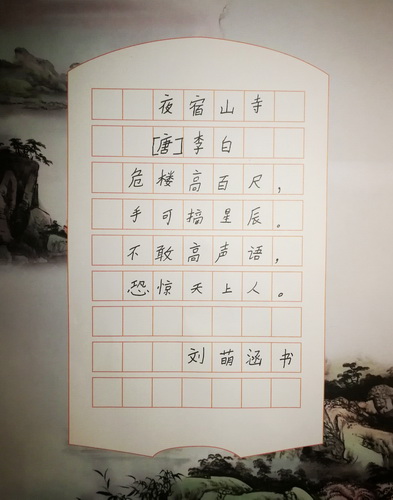 夜宿山寺
[唐]李白
危楼高百尺,
手可摘星辰。
不敢高声语,
恐惊天上人。
刘萌涵书